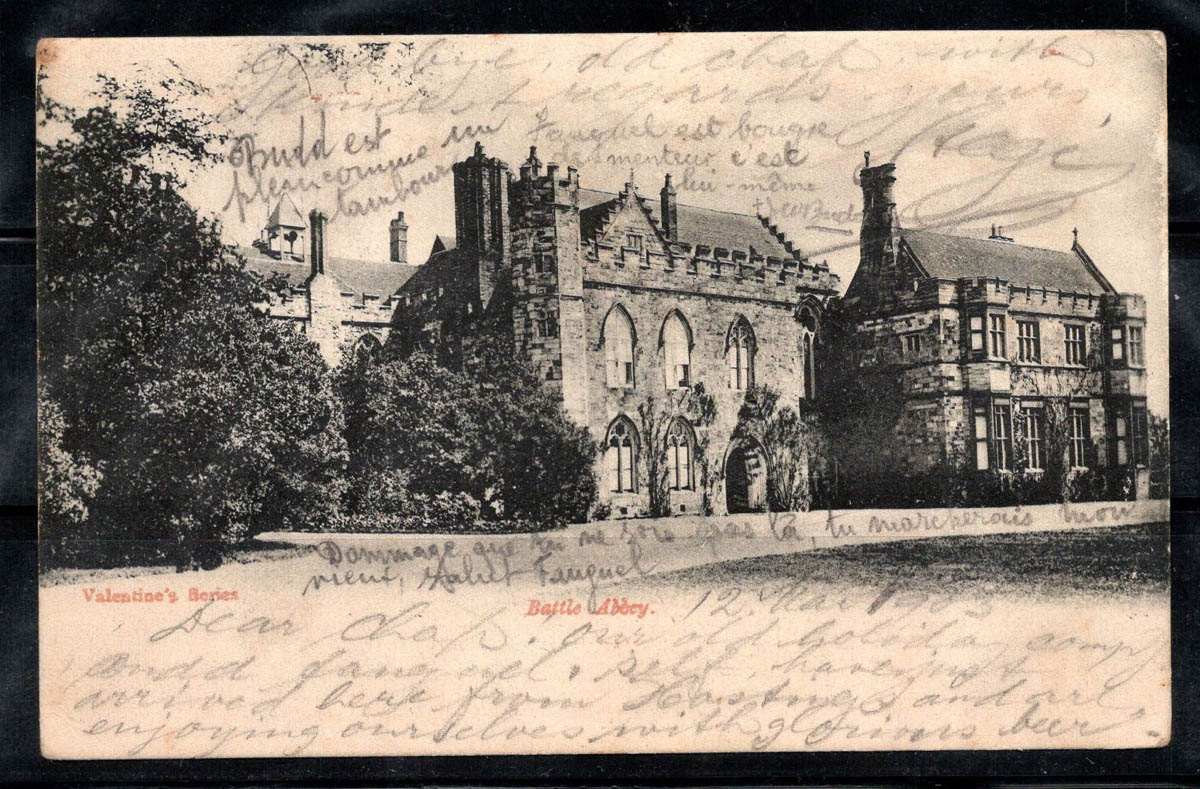 Good bye, old chap, with
kindest regards yours
Budd est
plus comique un
tambour
Fauquel est bougre
de menteur c'est
lui-même
Dommage que tu ne sois pas là, tu marcherais mon
vieux, Salut Fauquel
Valentine's Series
Battle Abbey.
12 Mai
Dear chap, our old holiday comp
Budd fauquel & self, have just
arrived here from Hastings and are
enjoying ourselves with glorious beer